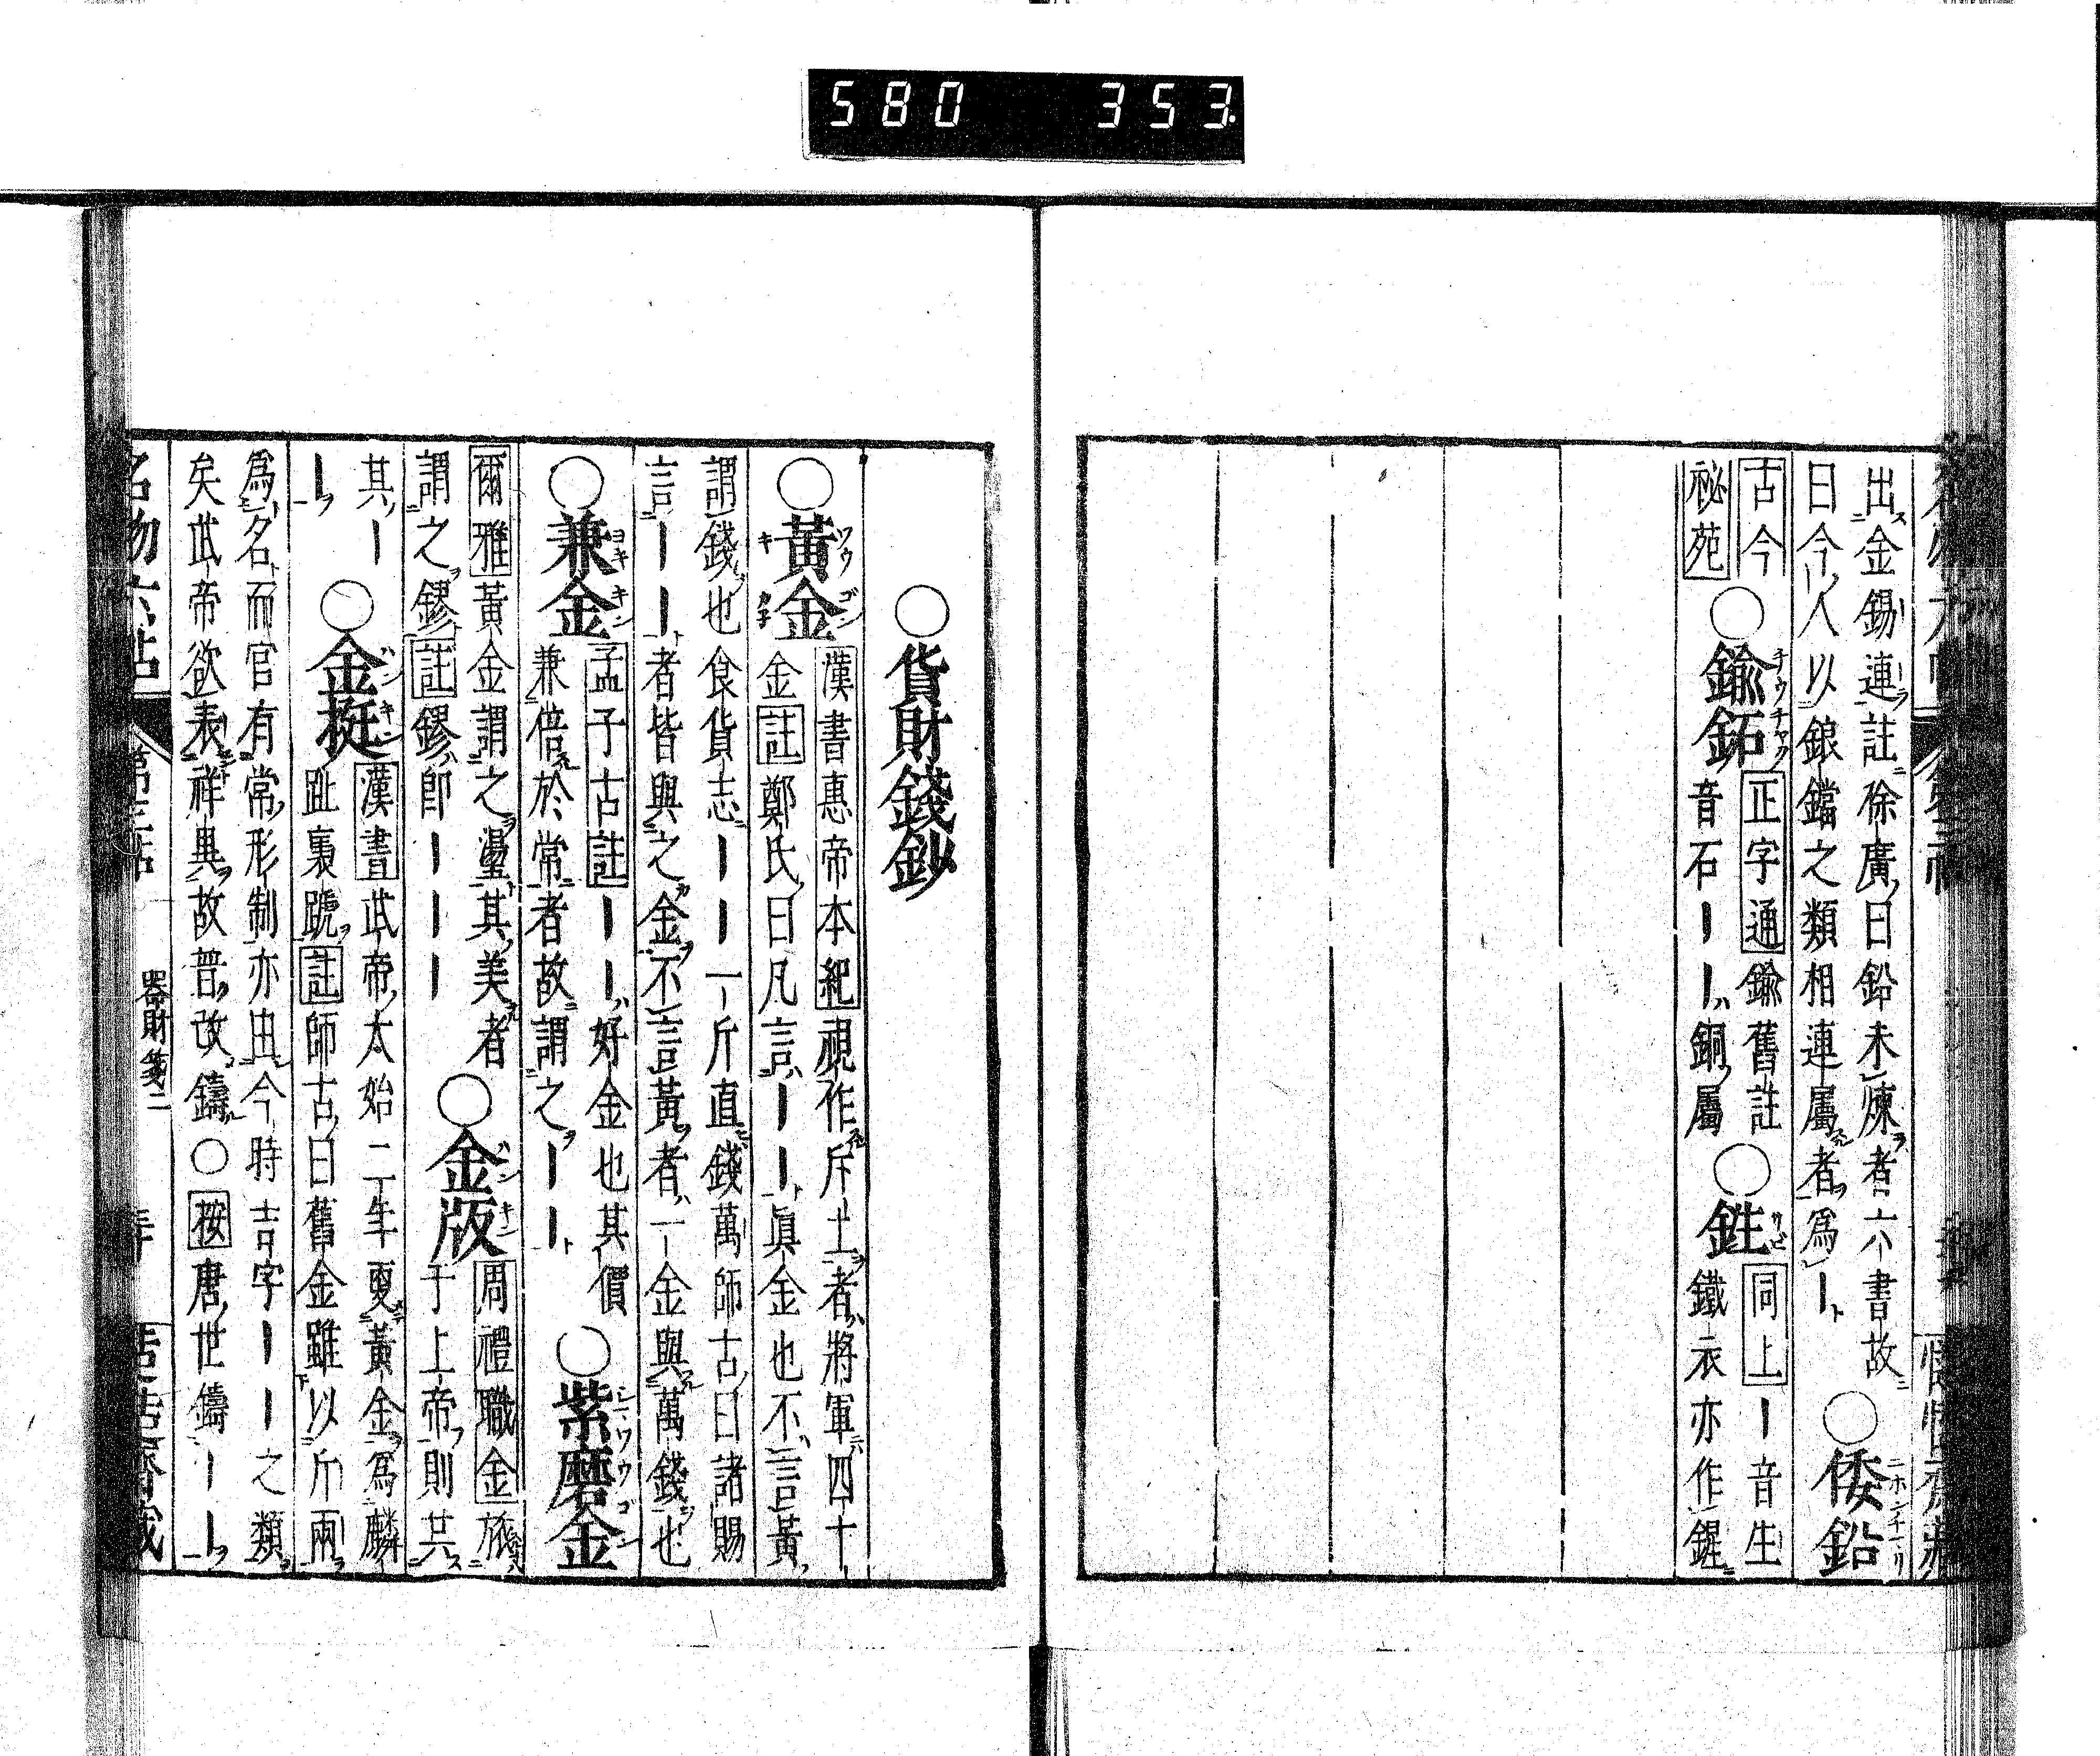 580 353.
出金錫連註徐廣曰鉛未煉者六書故
曰今人以鋃鐺之類相連屬者爲｜
○倭鉛
古今
祕苑
○鍮鉐
正字通鍮舊註
音石｜｜銅屬
○鉎
同上｜音生
鐵衣亦作鍟
○貨財錢鈔
○黃金
漢書惠帝本紀視作斥土者將軍四十
金註鄭氏曰凡言｜｜眞金也不言黃
謂錢也食貨志｜｜一斤直錢萬師古曰諸賜
言｜｜者皆與之金不言黃者一金與萬錢也
○兼金
孟子古註｜｜好金也其價
兼倍於常者故謂之｜｜
○紫磨金
爾雅黃金謂之璗其美者
謂之鏐註鏐即｜｜｜
○金版
周禮職金旅
于上帝則共
其｜
｜
○金挺
漢書武帝太始二年更黃金爲麟
趾裏蹏註師古曰舊金雖以斤兩
爲名而官有常形制亦由今時吉字｜｜之類
矣武帝欲表祥異故普改鑄○按唐世鑄｜｜
名物六帖
器財箋二